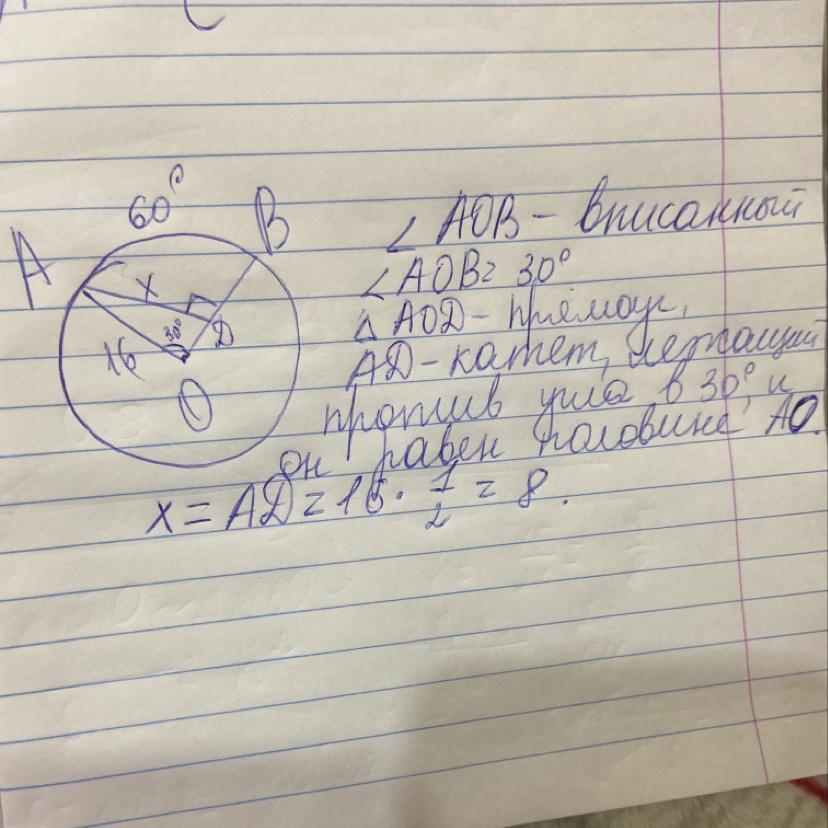 60°
A
B
x
30°
D
16
O
∠ AOB – вписанный
∠ AOB = 30°
△ AOD – прямоуг.
AD – катет, лежащий
против угла в 30°, и
он равен половине AO.
x = AD = 16 · 1/2 = 8.